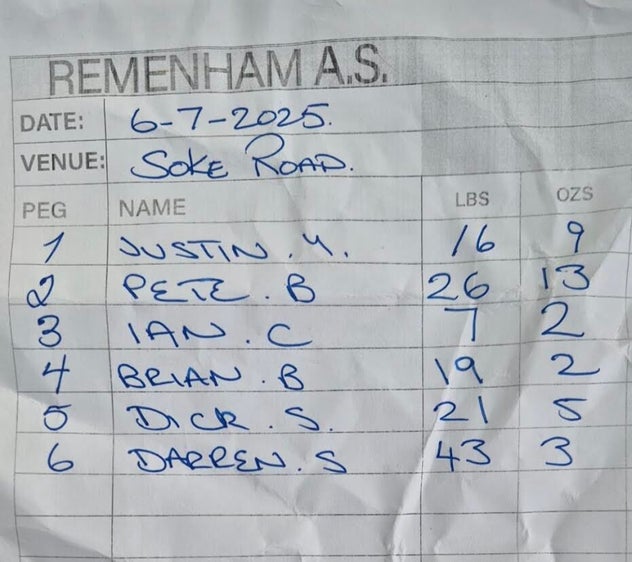 REMENHAM A.S.
DATE: 6-7-2025.
VENUE: SOKE ROAD.
PEG NAME LBS OZS
1 JUSTIN . Y. 16 9
2 PETE . B 26 13
3 IAN . C 7 2
4 BRIAN . B 19 2
5 DICK . S. 21 5
6 DARREN . S 43 3